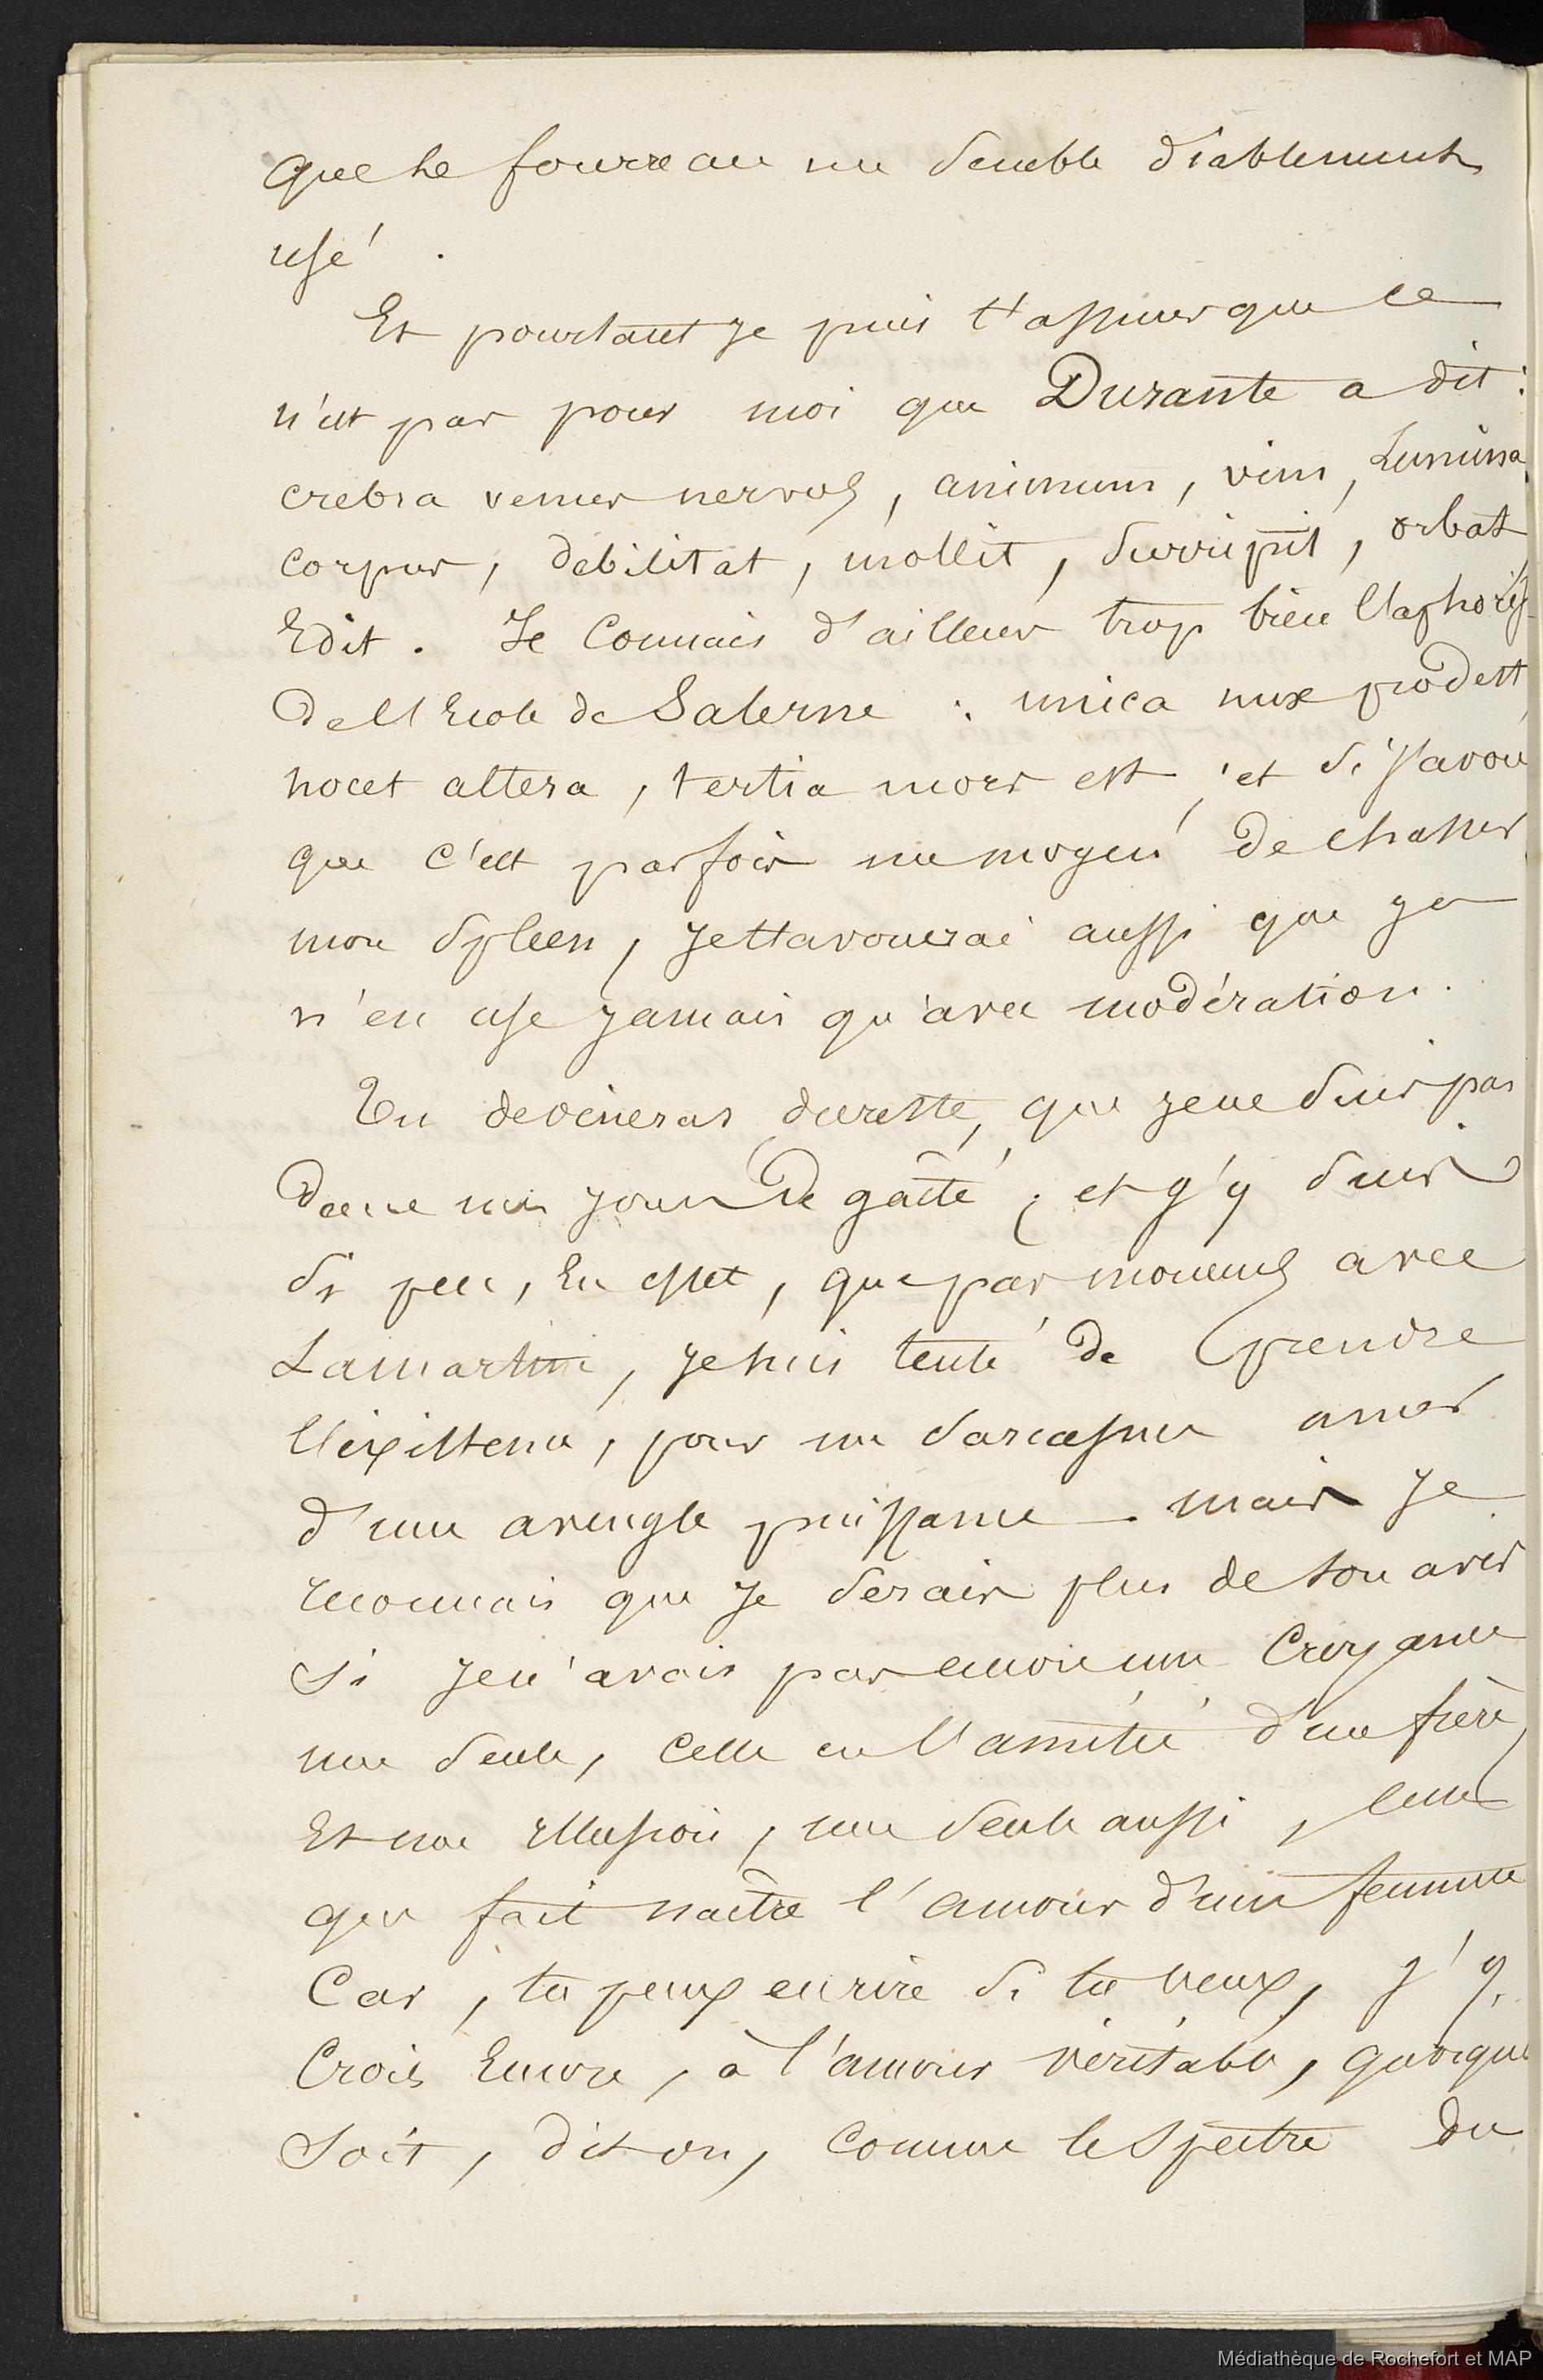 que le fourreau me semble diablement
usé.
Et pourtant je puis t'assurer que ce
n'est pas pour moi que Durante a dit :
crebra venus nervos, animum, vim, Lumina,
corpus, debilitat, mollit, surripit, orbat
Edit. Je Connais d'ailleurs trop bien l'aphoris-
De l'Ecole de Salerne : unica nux prodest,
nocet altera, tertia mors est, et si j'avoue
que c'est parfois un moyen de chasser
mon Spleen, je t'avouerai aussi que je
n'en use jamais qu'avec modération.
Tu devineras, dureste, que je ne suis pas
dans mes jours De gaîté ; et j'y suis
si peu, En effet, que par moments avec
Lamartine, je suis tenté de prendre
l'existence, pour un sarcasme amer
d'une aveugle puissance. mais je
reconnais que je serais plus de son avis
si je n'avais pas encore une Croyance
une seule, celle en l'amitié d'un frère,
Et une illusion, une seule aussi, celle
que fait naître l'amour d'une femme
Car, tu peux en rire si tu veux, j'y
Crois Encore, à l'amour véritable, quoique
Soit, dit on, comme le Spectre du
Médiathèque de Rochefort et MAP